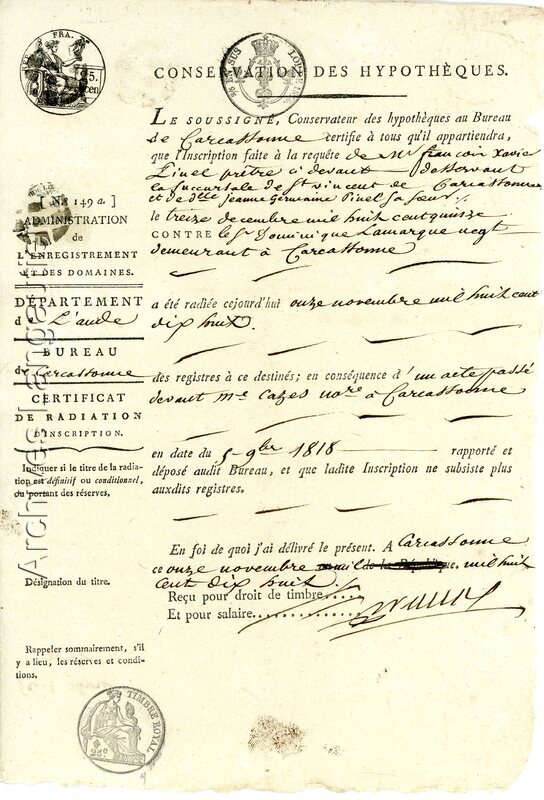 CONSERVATION DES HYPOTHÈQUES.
LE SOUSSIGNÉ, Conservateur des hypothèques au Bureau
de Carcassonne certifie à tous qu'il appartiendra,
que l'Inscription faite à la requête de Mr françois Xavier
Pinel prêtre ci devant desservant
la succursale de St vincent de Carcassonne
et de dlle jeanne Germaine Pinel sa soeur
le treize decembre mil huit cent quinze
CONTRE le Sr Dominique Lamarque negt
demeurant à Carcassonne
[ No 149 a. ]
ADMINISTRATION
de
L'ENREGISTREMENT
ET DES DOMAINES.
DÉPARTEMENT
de L'aude
BUREAU
de Carcassonne
CERTIFICAT
DE RADIATION
D'INSCRIPTION.
Indiquer si le titre de la radia-
tion est définitif ou conditionnel,
ou portant des réserves.
Désignation du titre.
Rappeler sommairement, s'il
y a lieu, les réserves et condi-
tions.
a été radiée cejourd'hui onze novembre mil huit cent
dix huit.
des registres à ce destinés; en conséquence d'un acte passé
devant Me Cazes nore à Carcassonne
en date du 5 9bre 1818 rapporté et
déposé audit Bureau, et que ladite Inscription ne subsiste plus
auxdits registres.
En foi de quoi j'ai délivré le présent. A Carcassonne
ce onze novembre mil de la République. mil huit
cent dix huit.
Reçu pour droit de timbre....
Et pour salaire..............
FRA.
25.
cen
TIMBRE ROYAL
25c
Archives Langeaud